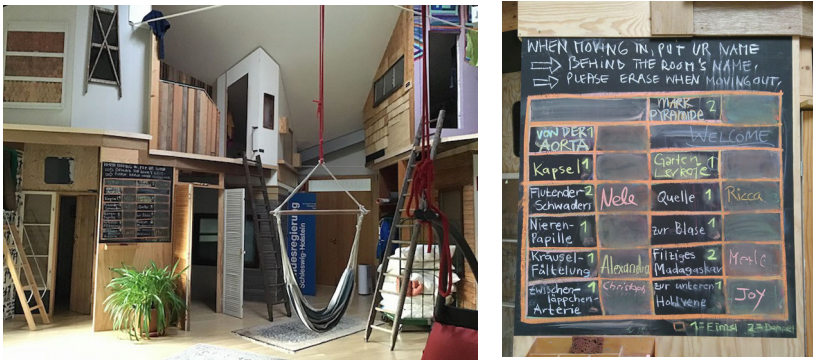 Landesregierung
Schleswig-Holstein
WHEN MOVING IN, PUT UR NAME
BEHIND THE ROOM'S NAME,
PLEASE ERASE WHEN MOVING OUT,
MARK PYRAMIDE 2
VON DER AORTA 1
WELCOME
Kapsel 1
Garten 1
Flutender Schwaden 2 Nele
Quelle 1 Ricca
Nieren-Papille 1
zur Blase 1
Kräusel-Fältelung 1 Alexandra
Filziges Madagaskar 2 Merle
Zwischen-läppchen-Arterie 1 Christoph
zur unteren Hohlvene 1 JOY
1=Einzel 2=Doppel